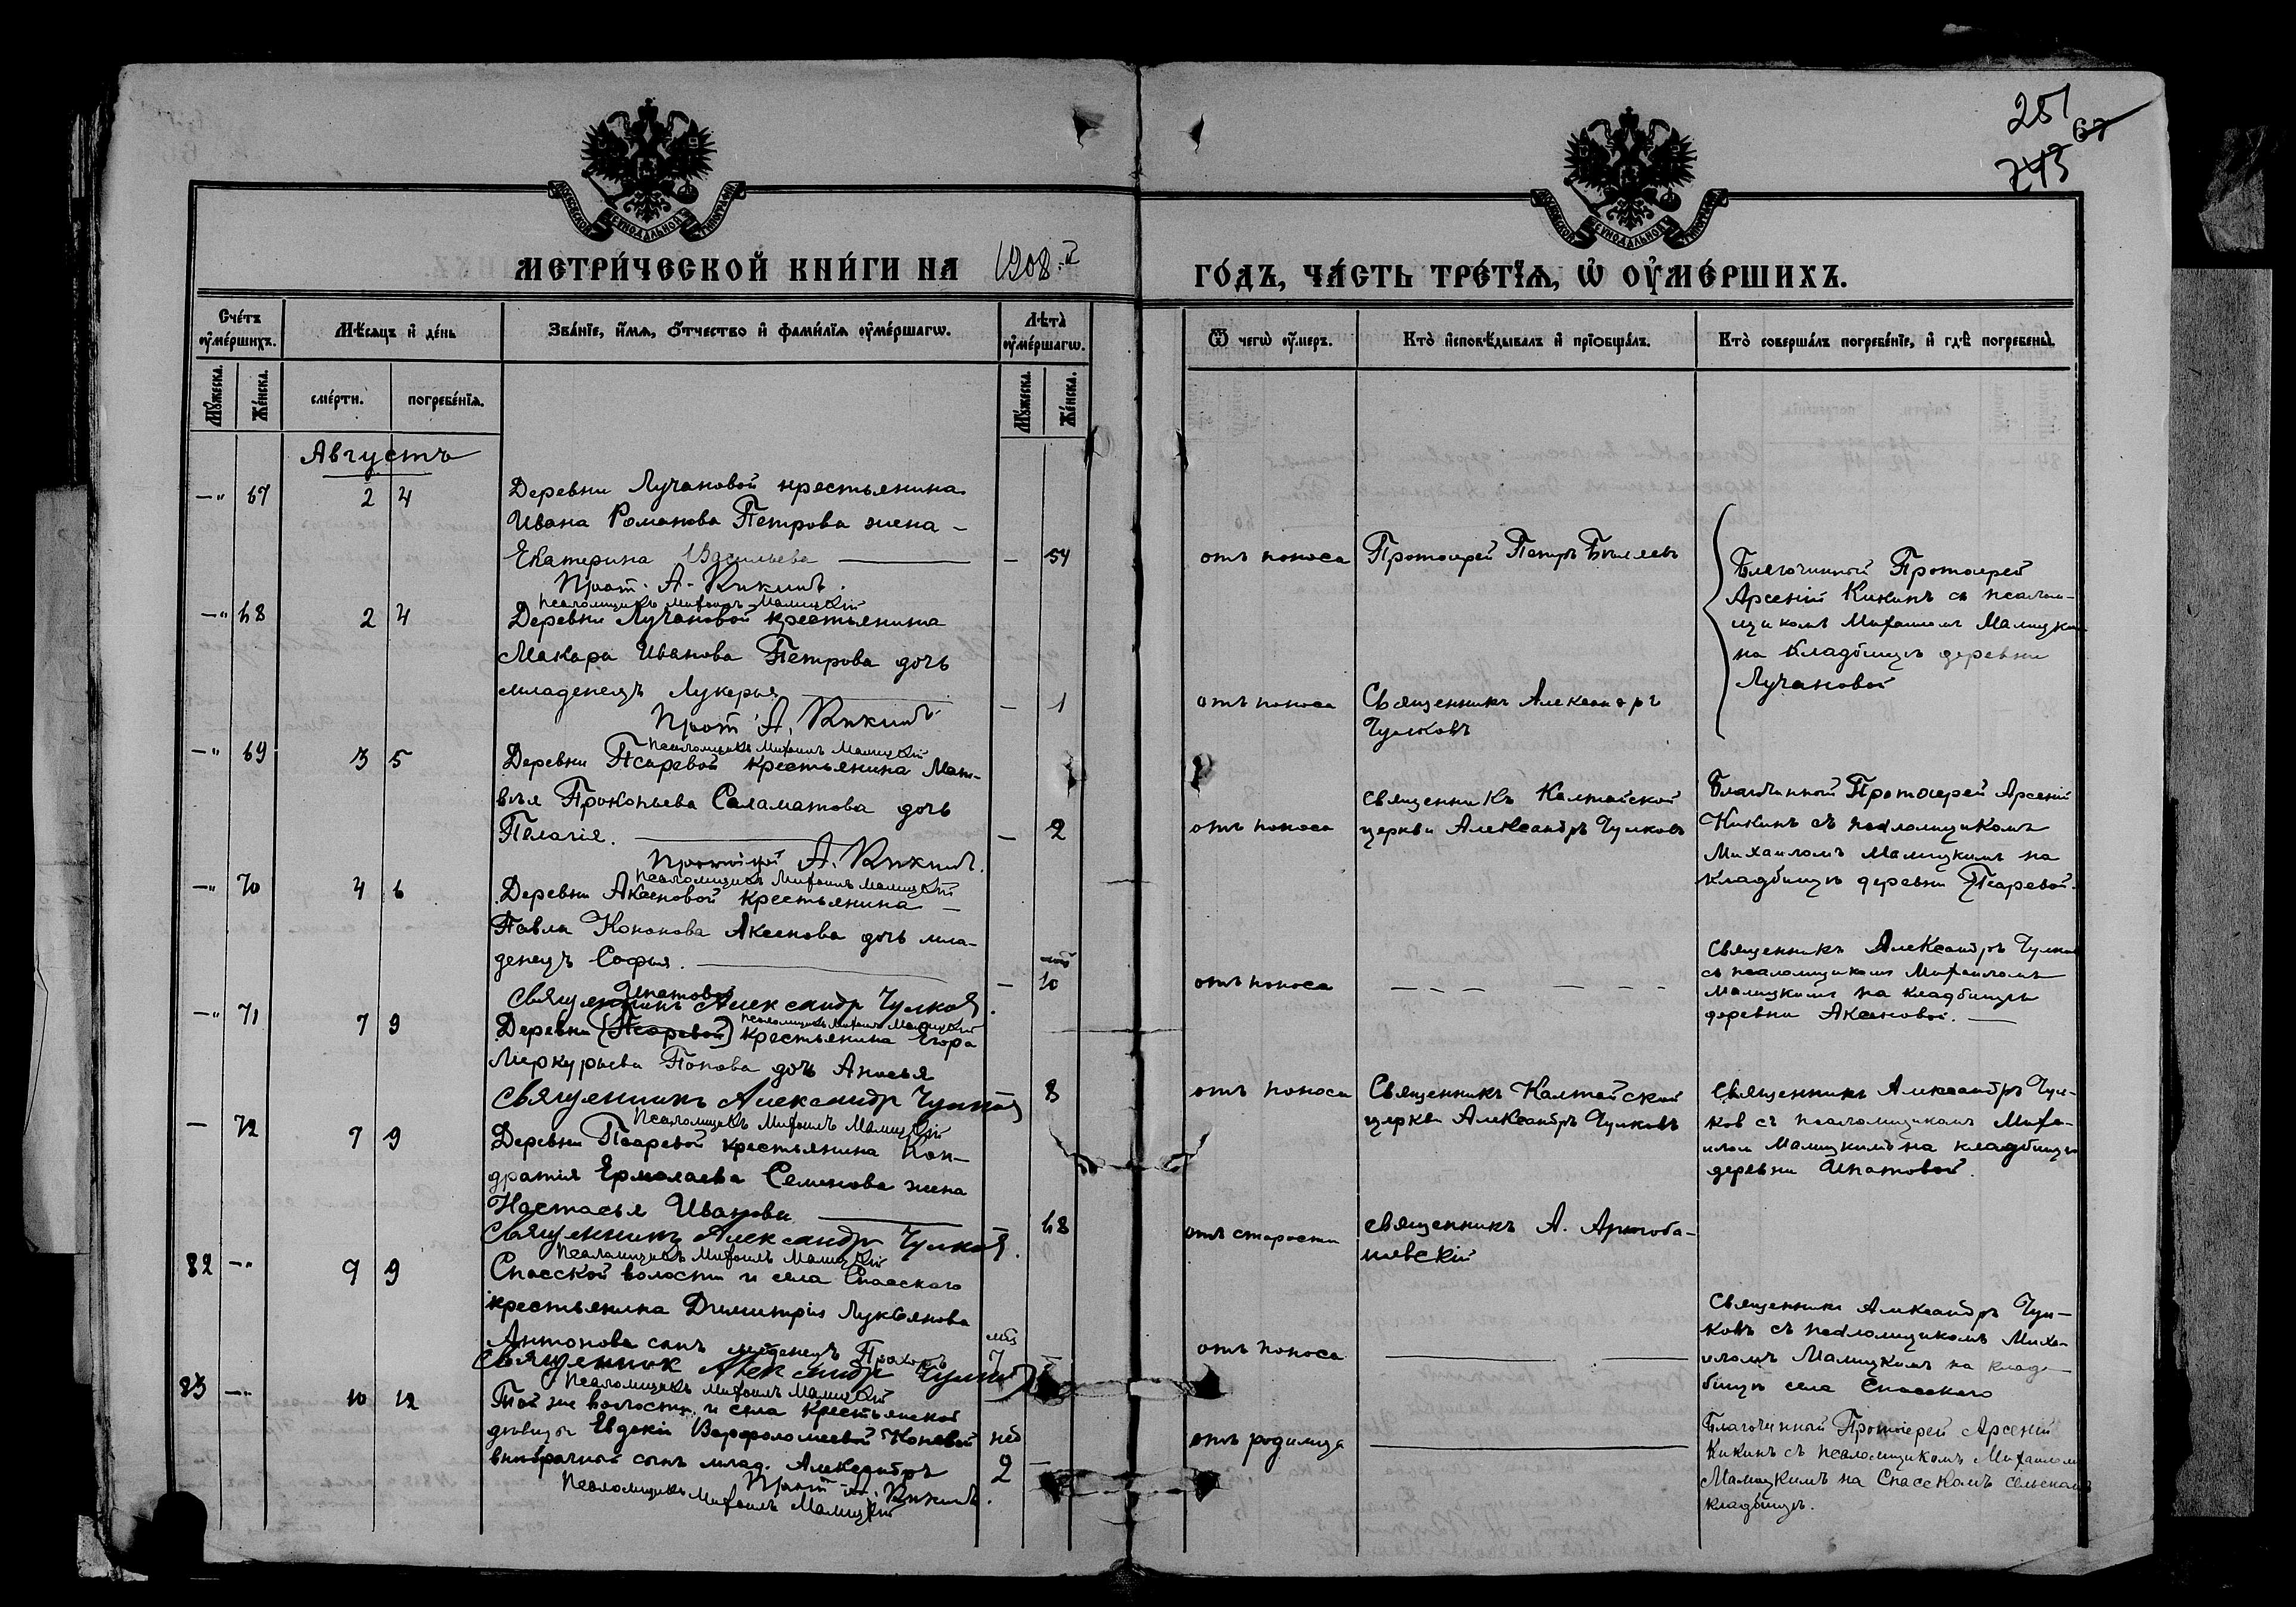 251
67
243
МЕТРИ́ЧЕСКОЙ КНИ́ГИ НА 1908.й
ГО́ДЪ, ЧА́СТЬ ТРЕ́ТЇѦ, Ѡ҆ ОУ҆МЕ́РШИХЪ.
Сче́тъ оу҆ме́ршихъ.
Мѣ́сяцъ и҆ де́нь
Зва́нїе, и҆́мѧ, ѻ҆́тчество и҆ фами́лїѧ оу҆ме́ршагѡ.
Лѣ́та̀ оу҆ме́ршагѡ.
Ѿ чегѡ̀ оу҆́меръ.
Кто̀ и҆сповѣ́дывалъ и҆ прїѻбща́лъ.
Кто̀ соверша́лъ погребе́нїе, и҆ гдѣ̀ погребены̀.
Му́жеска.
Же́нска.
сме́рти.
погребе́нїѧ.
Му́жеска.
Же́нска.
Августъ
—" 67 2 4 Деревни Лучановой крестьянина
Ивана Романова Петрова жена –
Екатерина Васильева — 54
Прот. А. Кикинъ.
Псаломщикъ Михаилъ Малицкій
отъ поноса
Протоіерей Петръ Бѣляевъ
Благочинный Протоіерей
Арсеній Кикинъ съ псалом-
щикомъ Михаиломъ Малицким
на кладбищѣ деревни
Лучановой
—" 68 2 4 Деревни Лучановой крестьянина
Макара Иванова Петрова дочь
младенецъ Лукерья — 1
Прот. А. Кикинъ
Псаломщикъ Михаилъ Малицкій
отъ поноса
Священникъ Александръ
Чулковъ
—" 69 3 5 Деревни Псаревой крестьянина Мат-
вѣя Прокопьева Саламатова дочь
Пелагія. — 2
Протоіерей А. Кикинъ.
Псаломщикъ Михаилъ Малицкій
отъ поноса
Священникъ Калтайской
церкви Александръ Чулковъ
Благочинный Протоіерей Арсеній
Кикинъ съ псаломщикомъ
Михаиломъ Малицкимъ на
кладбищѣ деревни Псаревой.
—" 70 4 6 Деревни Аксеновой крестьянина
Павла Кононова Аксенова дочь мла-
денецъ Софья. — 10
Священникъ Александр Чулков.
Псаломщикъ Михаилъ Малицкій
отъ поноса
— — — — — —
Священникъ Александръ Чулков
съ псаломщикомъ Михаиломъ
Малицкимъ на кладбищѣ
деревни Аксеновой.
—" 71 7 9 Ипатовой
Деревни (Псаревой) крестьянина Егора
Меркурьева Попова дочь Анисья 8
Священникъ Александр Чулков
Псаломщикъ Михаилъ Малицкій
отъ поноса
Священникъ Калтайской
церкви Александръ Чулковъ
Священникъ Александръ Чул-
ков съ псаломщикомъ Миха-
илом Малицкимъ на кладбищѣ
деревни Ипатовой.
— 72 7 9 Деревни Псаревой крестьянина Кон-
дратія Ермолаева Семенова жена
Настасья Иванова 68
Священникъ Александр Чулков.
Псаломщикъ Михаилъ Малицкій
отъ старости
Священникъ А. Артоба-
левскій
82 —" 9 9 Спасской волости и села Спасскаго
крестьянина Димитрія Лукьянова
Антонова сынъ младенецъ Прохоръ 7
Священник Александр Чулков
Псаломщикъ Михаилъ Малицкій
отъ поноса
Священникъ Александръ Чул-
ковъ съ псаломщикомъ Миха-
иломъ Малицкимъ на клад-
бищѣ села Спасскаго
83 —" 10 12 Той же волости и села крестьянской
дѣвицы Евдокіи Варфоломеевой
внѣбрачный сынъ млад. Александръ нед 2
Прот. А. Кикинъ.
Псаломщикъ Михаилъ Малицкій
отъ родимца
Благочинный Протоіерей Арсеній
Кикинъ съ псаломщикомъ Михаилом
Малицкимъ на Спасскомъ сельском
кладбищѣ.